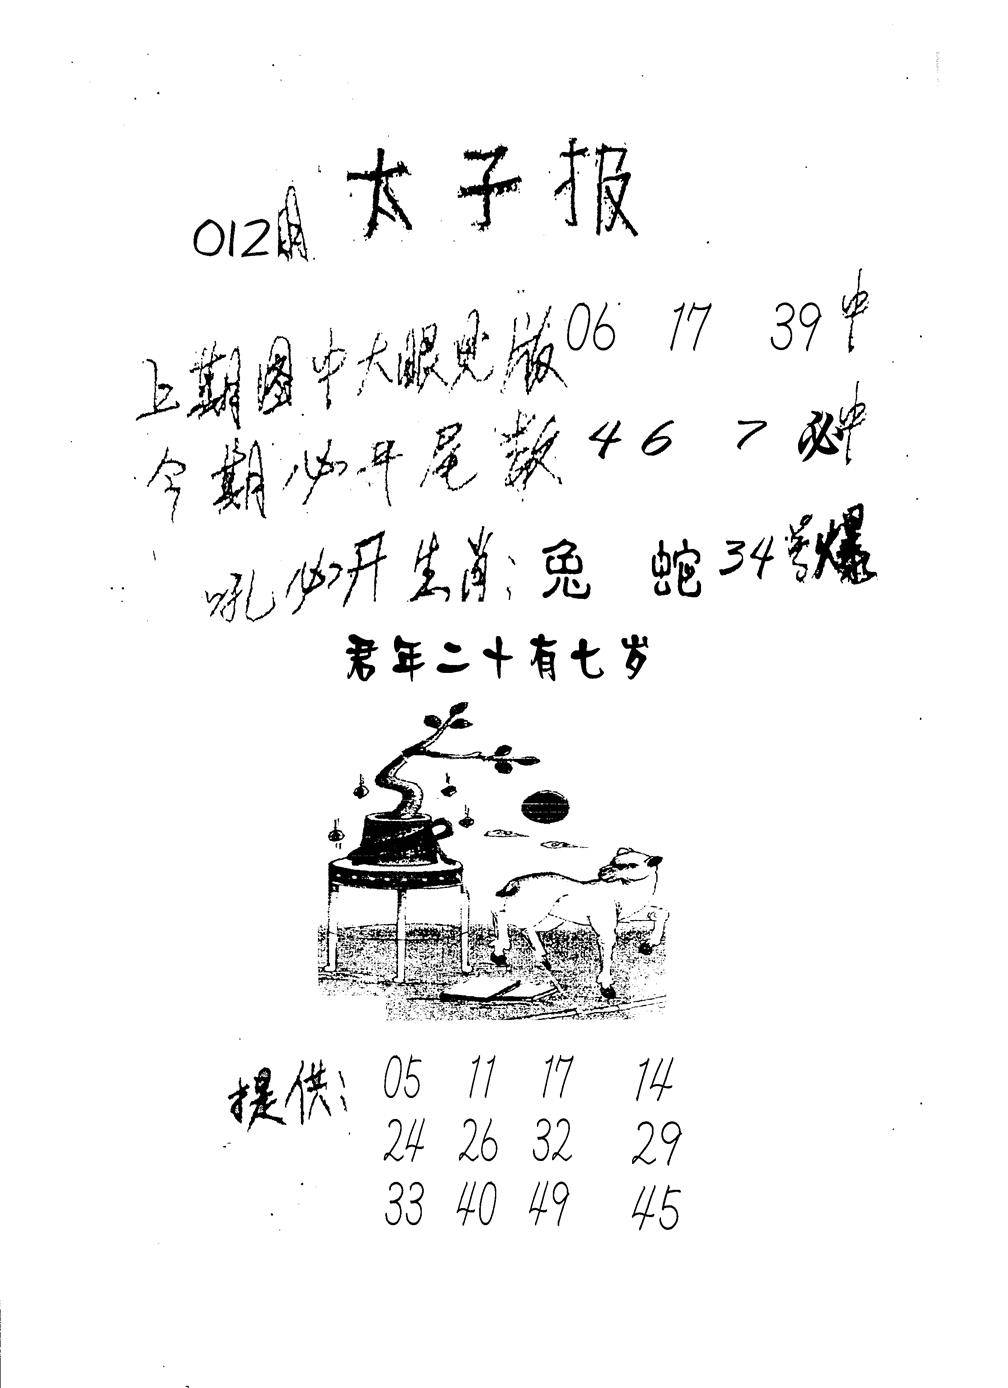 太子报
012期
上期图中大眼见版06 17 39中
今期必开尾数4 6 7必中
吼必开生肖：兔 蛇34号爆
君年二十有七岁
提供：05 11 17 14
24 26 32 29
33 40 49 45